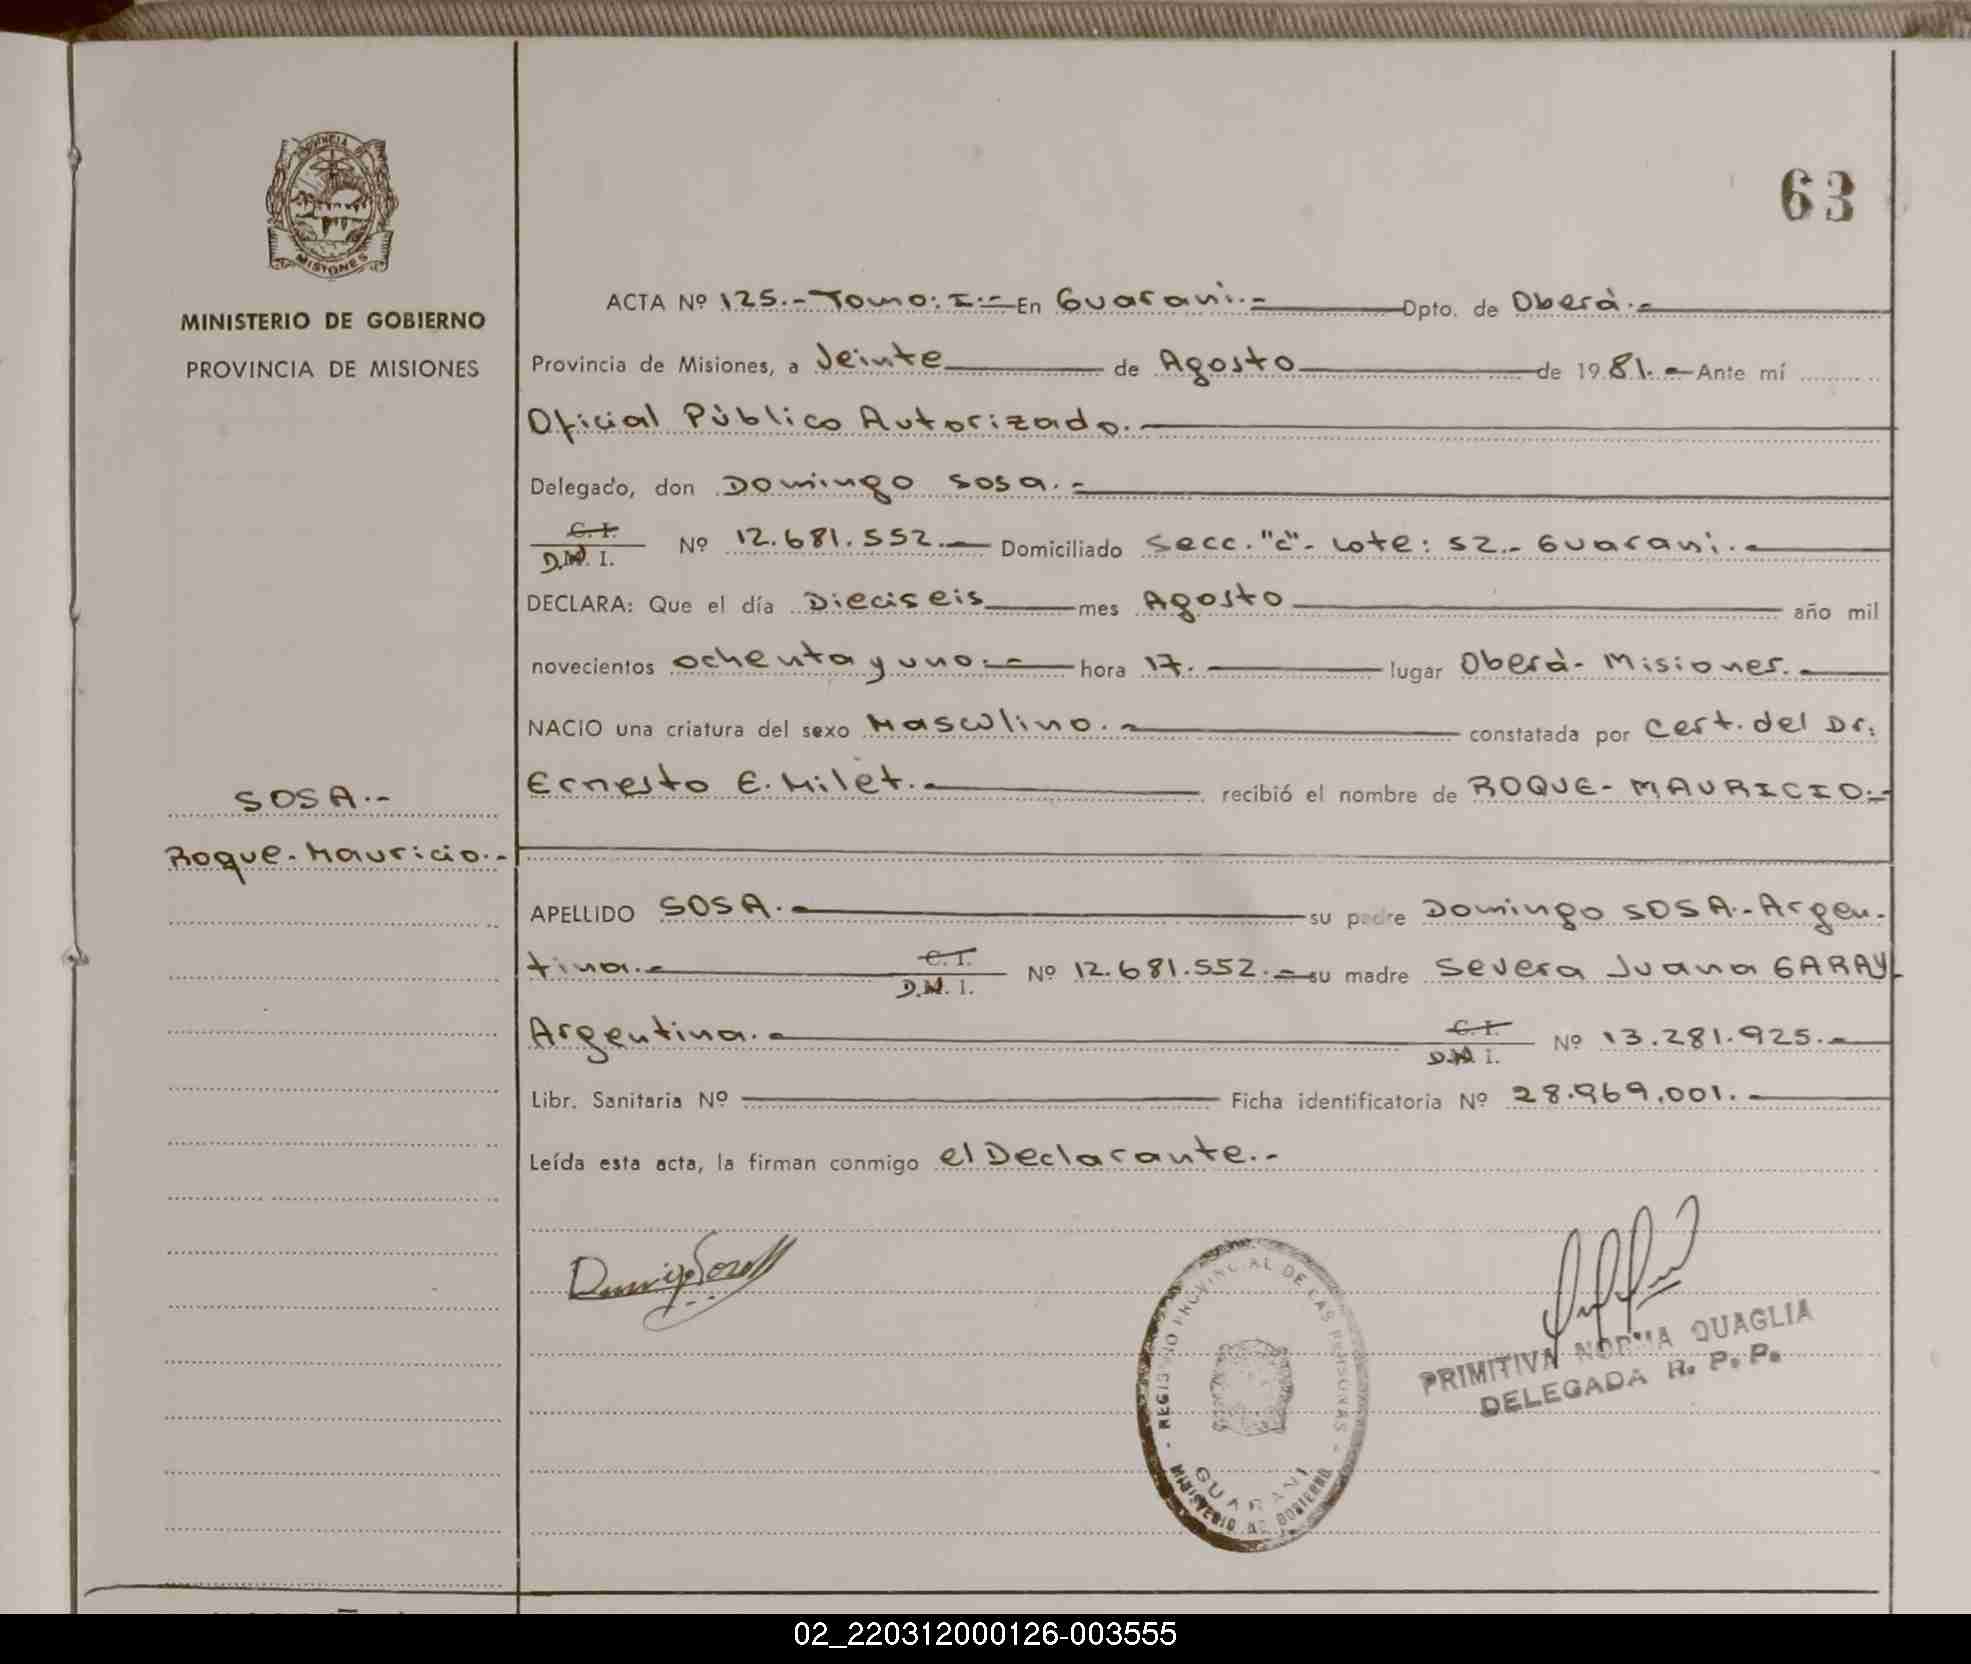 PROVINCIA DE
MISIONES
MINISTERIO DE GOBIERNO
PROVINCIA DE MISIONES
SOSA.-
Roque-Mauricio.-
63
ACTA Nº 125.- Tomo: I.- En Guaraní.- Dpto. de Oberá.-
Provincia de Misiones, a Veinte de Agosto de 1981.- Ante mí
Oficial Público Autorizado.-
Delegado, don Domingo Sosa.-
C. I.
D.N. I. Nº 12.681.552.- Domiciliado Secc. "C"- Lote: 52.- Guaraní.-
DECLARA: Que el día Dieciseis mes Agosto año mil
novecientos ochenta y uno.- hora 17. lugar Oberá- Misiones.-
NACIO una criatura del sexo Masculino.- constatada por Cert. del Dr:
Ernesto E. Milét.- recibió el nombre de ROQUE- MAURICIO.-
APELLIDO SOSA.- su padre Domingo SOSA.- Argen-
tina.- C. I.
D.N. I. Nº 12.681.552.- su madre Severa Juana GARAY-
Argentina.- C. I.
D.N. I. Nº 13.281.925.-
Libr. Sanitaria Nº Ficha identificatoria Nº 28.969.001.-
Leída esta acta, la firman conmigo el Declarante.-
REGISTRO PROVINCIAL DE LAS PERSONAS
GUARANI
MINISTERIO DE GOBIERNO
PRIMITIVA NORMA QUAGLIA
DELEGADA R. P. P.
02_220312000126-003555